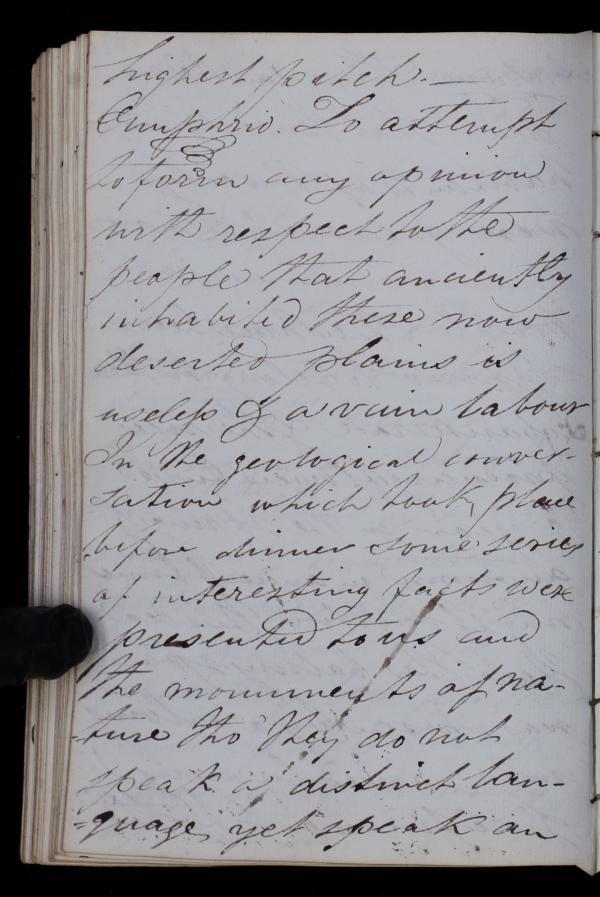 highest pitch. —
Emphrio. To attempt
to form any opinion
with respect to the
people that anciently
inhabited these now
deserted plains is
useless & a vain labour
In the geological conver-
sation which took place
before dinner some series
of interesting facts were
presented to us and
the monuments of na-
-ture tho' they do not
speak a distinct lan-
-guage, yet speak an